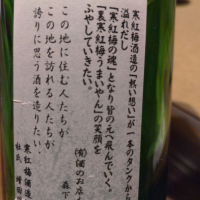 寒紅梅酒造の『熱い想い』が一本のタンクから
溢れだし
『寒紅梅の魂』となり皆の元へ飛んでいく。
『裏寒紅梅うまいやん』の笑顔を
ふやしていきたい。
㈲酒のお店
森下
この地に住む人たちが
この地を訪れる人たちが
誇りに思う酒を造りたい。
寒紅梅酒造
杜氏 増田